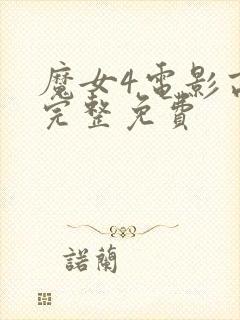 魔女4電影
完整免費
諾蘭